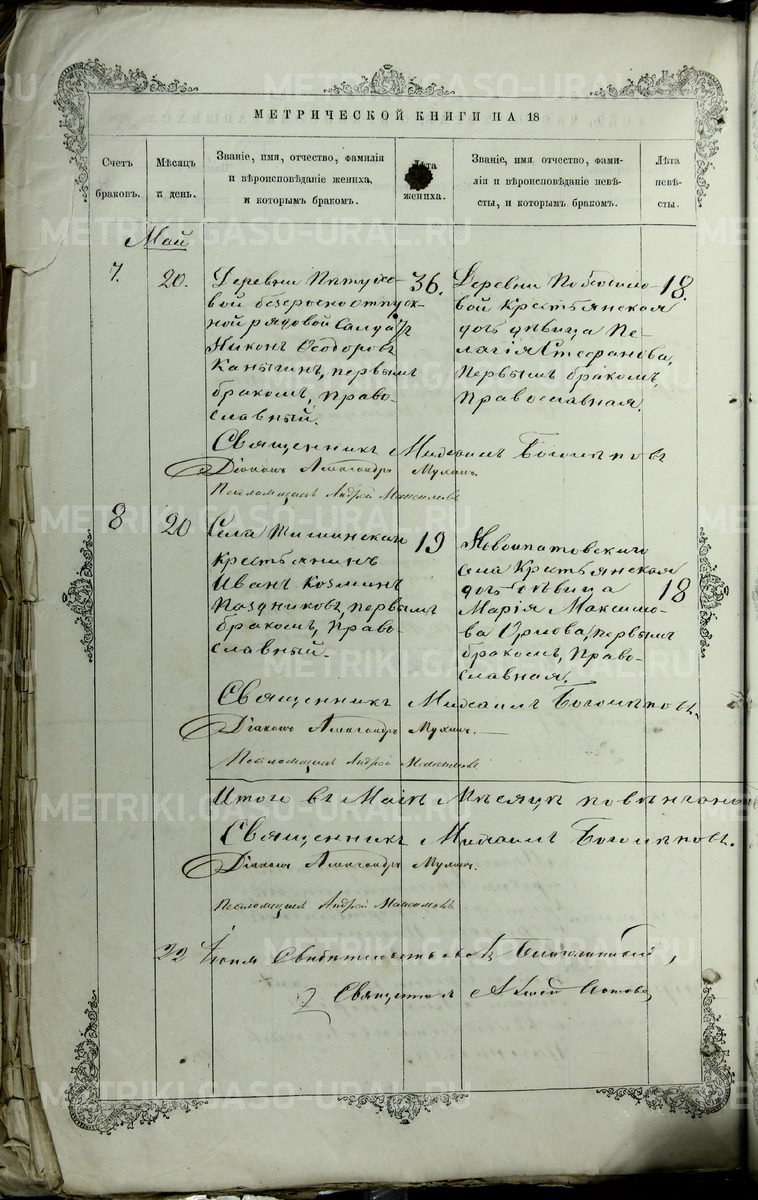 МЕТРИЧЕСКОЙ КНИГИ НА 18
Счетъ
браковъ.
Мѣсяцъ
и день.
Званіе, имя, отчество, фамилія
и вѣроисповѣданіе жениха,
и которымъ бракомъ.
жениха.
Званіе, имя, отчество, фами-
лія и вѣроисповѣданіе невѣ-
сты, и которымъ бракомъ.
Лѣта
невѣ-
сты.
Май
7. 20.
Деревни Пѣтухо-
вой безсрочноотпуск-
ной рядовой Солдатъ
Никонъ Ѳеодоровъ
Каныгинъ, первымъ
бракомъ, Право-
славный.
36.
Деревни
вой Крестьянская
дочь дѣвица Пе-
лагія Стефанова,
Первымъ бракомъ,
Православная.
18.
Священникъ Михаилъ
Діаконъ Александръ Мухинъ.
Андрей
8 20
Села
Крестьянинъ
Иванъ Козминъ
Поздниковъ, первымъ
бракомъ, Право-
славный.
19
Новоипатовскаго
села Крестьянская
дочь дѣвица
Марія Максимо-
ва первымъ
бракомъ, Право-
славная.
18
Священникъ Михаилъ
Діаконъ Александръ Мухинъ.
Андрей
Итого въ Маѣ Мѣсяцѣ повѣнчано
Священникъ Михаилъ
Діаконъ Александръ Мухинъ.
Андрей
22
METRIKI.GASO-URAL.RU